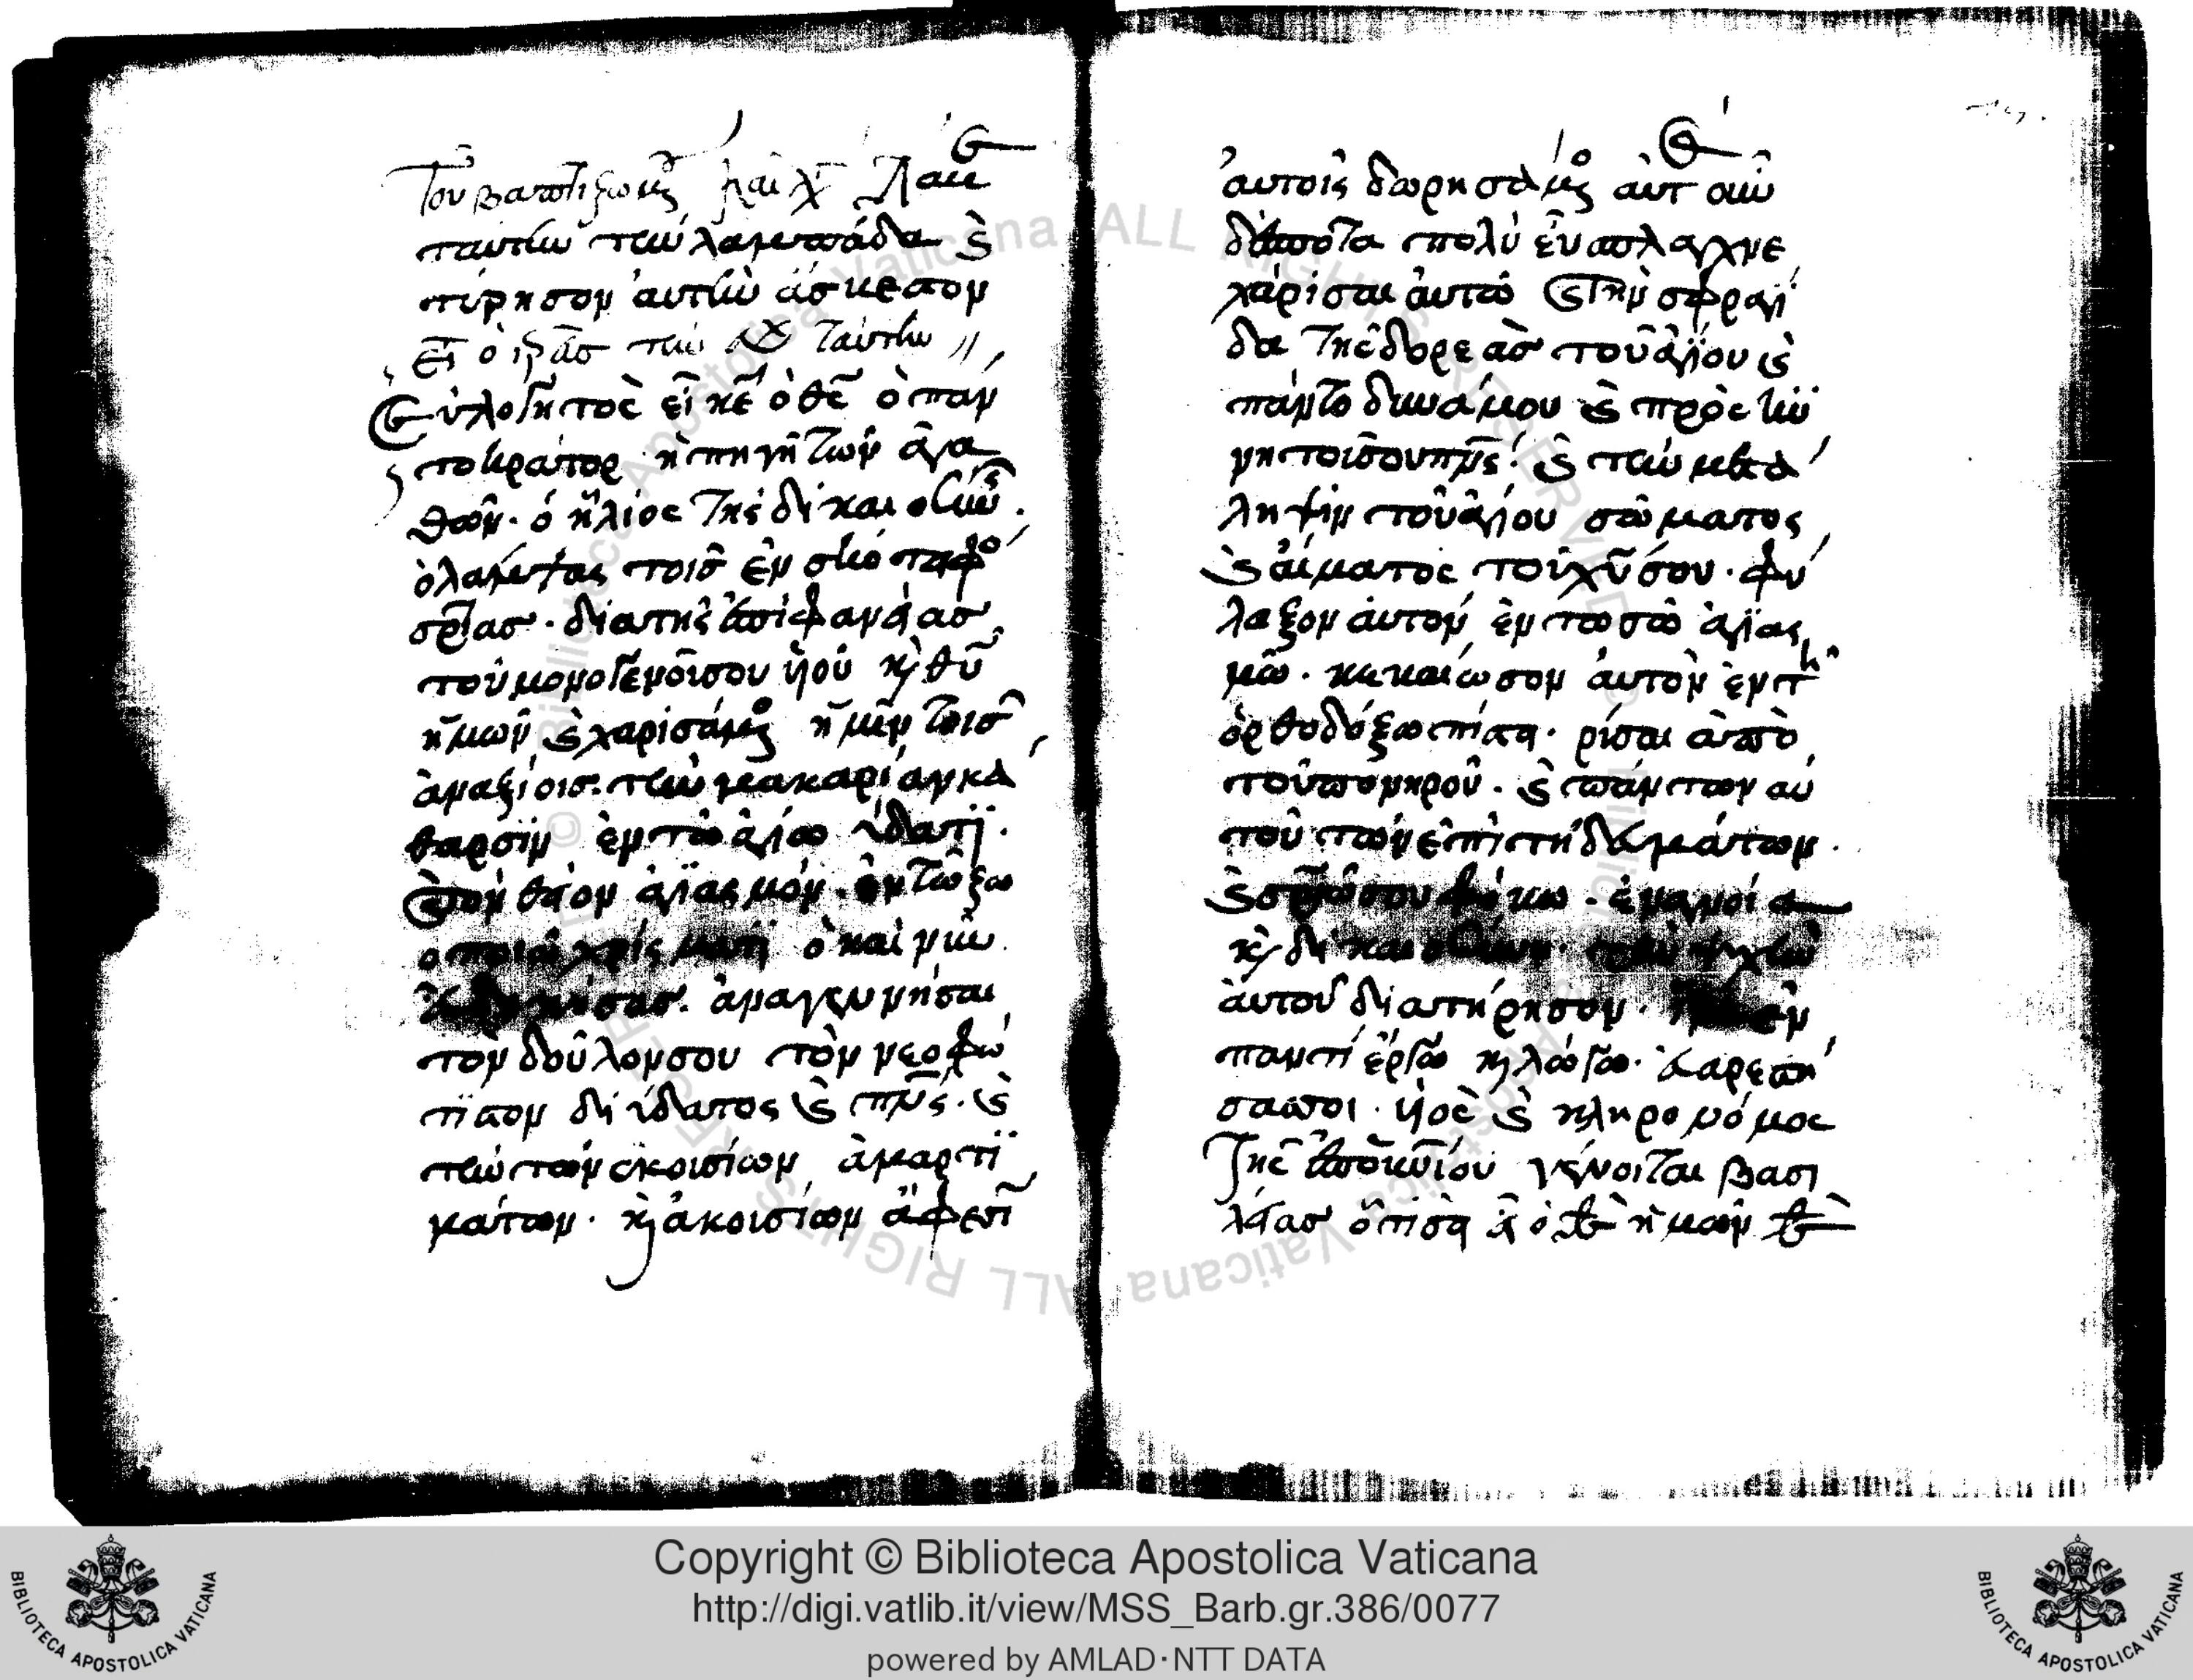 Του βαπτιζομενος και λεγει Λαβε
ταύτην την λαμπάδα καὶ
τύρησον αυτὴν άσκεπον
εἶτα ὁ ἱερεὺς τὴν εὐχὴν ταύτην
Ευλογητὸς εἶ κε ὁ θς ὁ παν
τοκράτορ ἡ πηγὴ τῶν ἀγα
θῶν· ὁ ἥλιος τῆς δικαιοσύνης.
ὁ λάμψας τοισ ἐν σκό
τους· δια της ἐπιφανείασ
του μονογενοῦς σου υἱοῦ κ θυ
ἡμῶν καὶ χαρισάμενος ἡμῖν τοισ
ἀναξίοισ. την μακαρίαν κά
θαρσϊν ἐν τῶ ἁγίω ὕδατϊ.
καὶ τον θείον ἁγϊασμόν· ἐν τῶ ζω
οποιῶ χρίσματι ὁ καὶ νῦν
εὐδοκήσας. ἀναγεννήσαι
τὸν δοῦλον σου τὸν νεοφώ
τϊστον δι ὕδατος καὶ πνς. καὶ
την των εκουσίων ἁμαρτϊ
μάτων· κ ἀκουσίων ἄφεσϊ
ἀυτοις δωρησάμενος αὐτ οὖν
δέσποτα πολὺ ἔυσπλαγχνε
χάρισαι ἀυτῶ καὶ τὴν σφραγί
δα της δορεὰσ τοῦ ἁγϊου καὶ
πάντοδυνάμου καὶ προσκϋ
νητοῦ σου πνς. καὶ την μετά
ληψιν τοῦ ἁγίου σώματος
καὶ αίματος τοῦ χυ σου. φύ
λαξον ἀυτον ἐν τω σῶ ἁγϊας
μῶ. βεβαίωσον ἀυτὸν ἐν τη
ὀρθοδόξω πίστει. ρύσαι ἀπὸ
τοῦ πονηροῦ. καὶ πάντων αὐ
τοῦ των ἐπιτηδευμάτων.
καὶ σωτηρίω σου φόβω. ἐν ἁγνεία
κ δικαιοσύνη. την ψυχὴν
ἀυτοῦ διατήρησον. ἵνα ἐν
παντί ἔργω κ λόγω. εὐαρεστή
σας σοι. υἱὸς καὶ κληρονόμος
Της ἐπουρανίου γένοιται βασι
λείασ ὅτι σὺ εἶ ὁ θς ἡμῶν θς
Copyright © Biblioteca Apostolica Vaticana
http://digi.vatlib.it/view/MSS_Barb.gr.386/0077
powered by AMLAD·NTT DATA
BIBLIOTECA APOSTOLICA VATICANA
BIBLIOTECA APOSTOLICA VATICANA